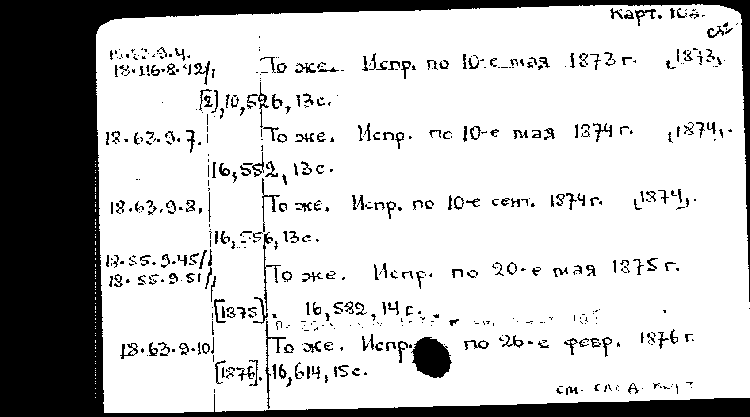 Карт. 10а.
с32
18.63.9.4.
18.116.8.42/, То же. Испр. по 10-е мая 1873 г. [1873].
[2], 10, 526, 13 с.
18.63.9.7. То же. Испр. по 10-е мая 1874 г. [1874].
16, 552, 13 с.
18.63.9.8. То же. Испр. по 10-е сент. 1874 г. [1874].
16, 556, 13 с.
18.55.9.45/,
18.55.9.51/, То же. Испр. по 20-е мая 1875 г.
[1875]. 16, 582, 14 с.
18.63.9.10. То же. Испр. по 26-е февр. 1876 г.
[1876]. 16, 614, 15 с.
см. след. карт